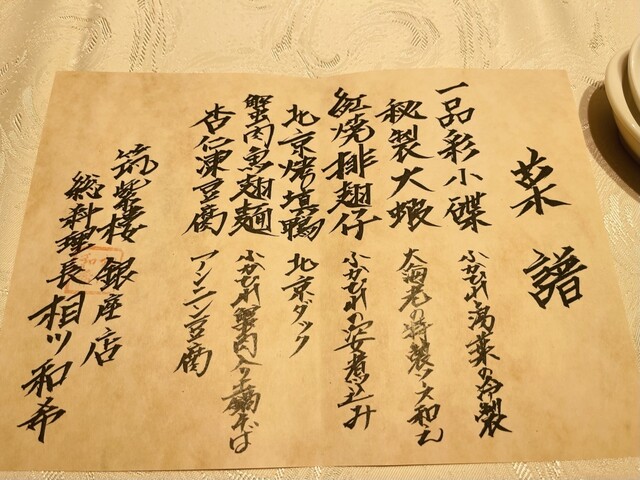 菜譜
一品彩小碟
ふかひれ湯葉の冷製
秘製大蝦
大海老の特製ソース和え
紅焼排翅仔
ふかひれの姿煮込み
北京烤填鴨
北京ダック
蟹肉魚翅麺
ふかひれ蟹肉入り土鍋そば
杏仁凍豆腐
アンニン豆腐
筑紫樓 銀座店
総料理長 相川和希